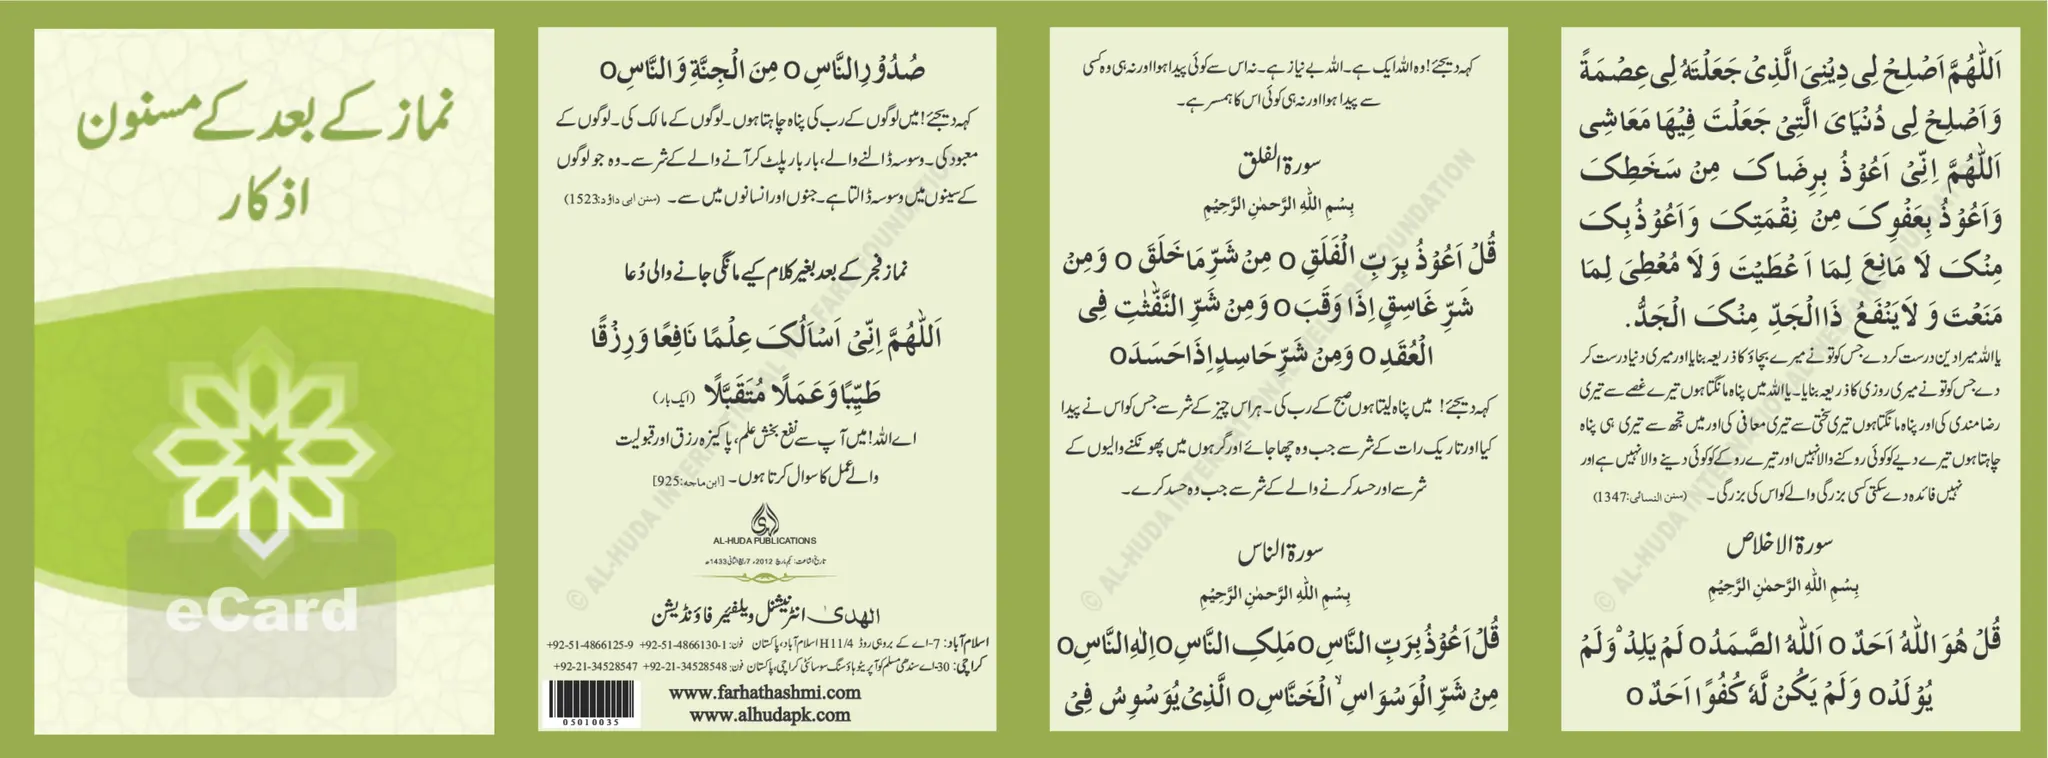 نماز کے بعد کے مسنون
اذکار
eCard
اَللّٰهُمَّ اَصْلِحْ لِی دِیْنِیَ الَّذِیْ جَعَلْتَهٗ لِی عِصْمَةً
وَاَصْلِحْ لِی دُنْیَایَ الَّتِیْ جَعَلْتَ فِیْهَا مَعَاشِی
اَللّٰهُمَّ اِنِّیْ اَعُوْذُ بِرِضَاکَ مِنْ سَخَطِکَ
وَاَعُوْذُ بِعَفْوِکَ مِنْ نِقْمَتِکَ وَاَعُوْذُبِکَ
مِنْکَ لَا مَانِعَ لِمَا اَعْطَیْتَ وَلَا مُعْطِیَ لِمَا
مَنَعْتَ وَ لَایَنْفَعُ ذَاالْجَدِّ مِنْکَ الْجَدُّ.
یا اللہ میرا دین درست کردے جس کو تو نے میرے بچاؤ کا ذریعہ بنایا اور میری دنیا درست کر
دے جس کو تو نے میری روزی کا ذریعہ بنایا۔ یا اللہ میں پناہ مانگتا ہوں تیرے غصے سے تیری
رضا مندی کی اور پناہ مانگتا ہوں تیری سختی سے تیری معافی کی اور میں تجھ سے تیری ہی پناہ
چاہتا ہوں تیرے دیے کو کوئی روکنے والا نہیں اور تیرے روکے کو کوئی دینے والا نہیں ہے اور
نہیں فائدہ دے سکتی کسی بزرگی والے کو اس کی بزرگی۔ (سنن النسائی:1347)
سورة الاخلاص
بِسْمِ اللّٰهِ الرَّحمٰنِ الرَّحِیْمِ
قُلْ هُوَ اللّٰهُ اَحَدٌ O اَللّٰهُ الصَّمَدُ O لَمْ یَلِدْ وَلَمْ
یُوْلَدْ O وَلَمْ یَکُنْ لَّهٗ کُفُوًا اَحَدٌ O
کہہ دیجئے! وہ اللہ ایک ہے۔ اللہ بے نیاز ہے۔ نہ اس سے کوئی پیدا ہوا اور نہ ہی وہ کسی
سے پیدا ہوا اور نہ ہی کوئی اس کا ہمسر ہے۔
سورة الفلق
بِسْمِ اللّٰهِ الرَّحمٰنِ الرَّحِیْمِ
قُلْ اَعُوْذُ بِرَبِّ الْفَلَقِ O مِنْ شَرِّ مَا خَلَقَ O وَمِنْ
شَرِّ غَاسِقٍ اِذَا وَقَبَ O وَمِنْ شَرِّ النَّفّٰثٰتِ فِی
الْعُقَدِ O وَمِنْ شَرِّ حَاسِدٍ اِذَا حَسَدَ O
کہہ دیجئے! میں پناہ لیتا ہوں صبح کے رب کی۔ ہر اس چیز کے شر سے جس کو اس نے پیدا
کیا اور تاریک رات کے شر سے جب وہ چھا جائے اور گرہوں میں پھونکنے والیوں کے
شر سے اور حسد کرنے والے کے شر سے جب وہ حسد کرے۔
سورة الناس
بِسْمِ اللّٰهِ الرَّحمٰنِ الرَّحِیْمِ
قُلْ اَعُوْذُ بِرَبِّ النَّاسِ O مَلِکِ النَّاسِ O اِلٰهِ النَّاسِ O
مِنْ شَرِّ الْوَسْوَاسِ الْخَنَّاسِ O الَّذِیْ یُوَسْوِسُ فِیْ
صُدُوْرِ النَّاسِ O مِنَ الْجِنَّةِ وَالنَّاسِ O
کہہ دیجئے! میں لوگوں کے رب کی پناہ چاہتا ہوں۔ لوگوں کے مالک کی۔ لوگوں کے
معبود کی۔ وسوسہ ڈالنے والے، بار بار پلٹ کر آنے والے کے شر سے۔ وہ جو لوگوں
کے سینوں میں وسوسہ ڈالتا ہے۔ جنوں اور انسانوں میں سے۔ (سنن ابی داؤد:1523)
نماز فجر کے بعد بغیر کلام کیے مانگی جانے والی دُعا
اَللّٰهُمَّ اِنِّیْ اَسْاَلُکَ عِلْمًا نَافِعًا وَ رِزْقًا
طَیِّبًا وَعَمَلًا مُتَقَبَّلًا (ایک بار)
اے اللہ! میں آپ سے نفع بخش علم، پاکیزہ رزق اور قبولیت
والے عمل کا سوال کرتا ہوں۔ [ابن ماجہ:925]
AL-HUDA PUBLICATIONS
تاریخ اشاعت: یکم مارچ 2012ء 7 ربیع الثانی 1433ھ
الہدیٰ انٹرنیشنل ویلفیئر فاؤنڈیشن
اسلام آباد: 7-اے کے بروہی روڈ H11/4 اسلام آباد، پاکستان فون: +92-51-4866130-1 +92-51-4866125-9
کراچی: 30-اے سندھی مسلم کوآپریٹو ہاؤسنگ سوسائٹی کراچی، پاکستان فون: +92-21-34528548 +92-21-34528547
www.farhathashmi.com
www.alhudapk.com
05010035
© AL-HUDA INTERNATIONAL WELFARE FOUNDATION
© AL-HUDA INTERNATIONAL WELFARE FOUNDATION
© AL-HUDA INTERNATIONAL WELFARE FOUNDATION